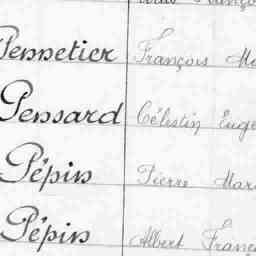 Pennetier François Ma
Pensard Célestin Euge
Pépin Pierre Mari
Pépin Albert Franç